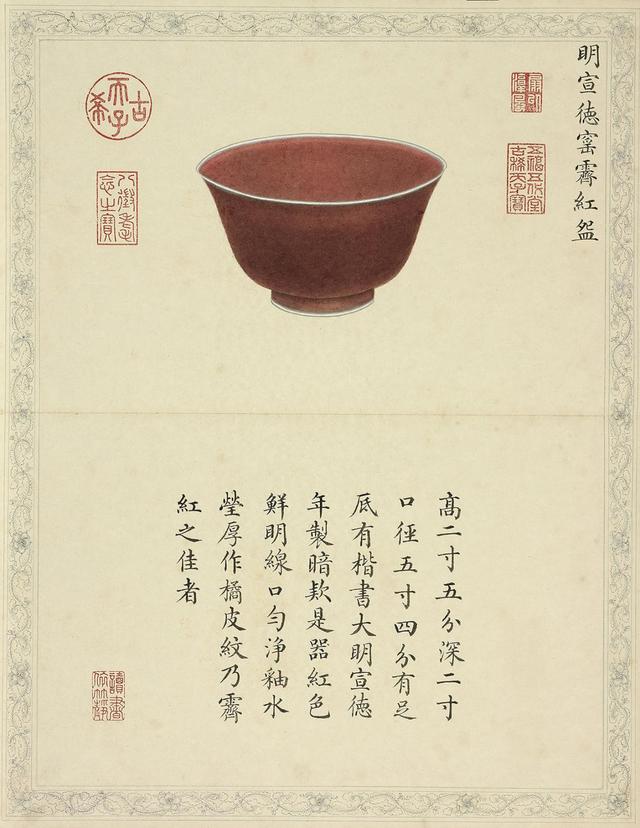 明宣德窰霽紅盌
五福五代堂
古稀天子寶
古希天子
八徵耄
念之寶
高二寸五分深二寸
口徑五寸四分有足
底有楷書大明宣德
年製暗款是器紅色
鮮明線口勻淨釉水
瑩厚作橘皮紋乃霽
紅之佳者
讀書
依竹靜